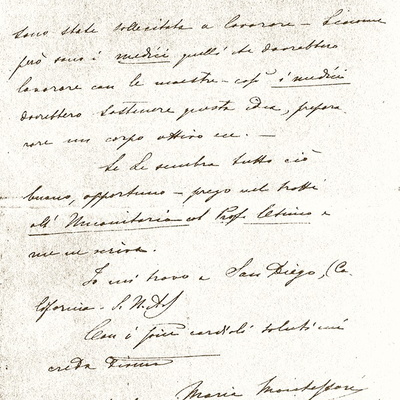 sono state sollecitate a lavorare – Siccome
però sono i medici quelli che dovrebbero
lavorare con le maestre – così i medici
dovrebbero sostenere questa idea, prepa
rare un corpo attivo ecc. –
Se Le sembra tutto ciò
buono, opportuno – prego nel
all' Umanitaria col Prof.  e
me ne scriva.
Io mi trovo a San Diego, (Ca
lifornia – S. U. A)
Con i più cordiali saluti mi
creda
Maria Montessori